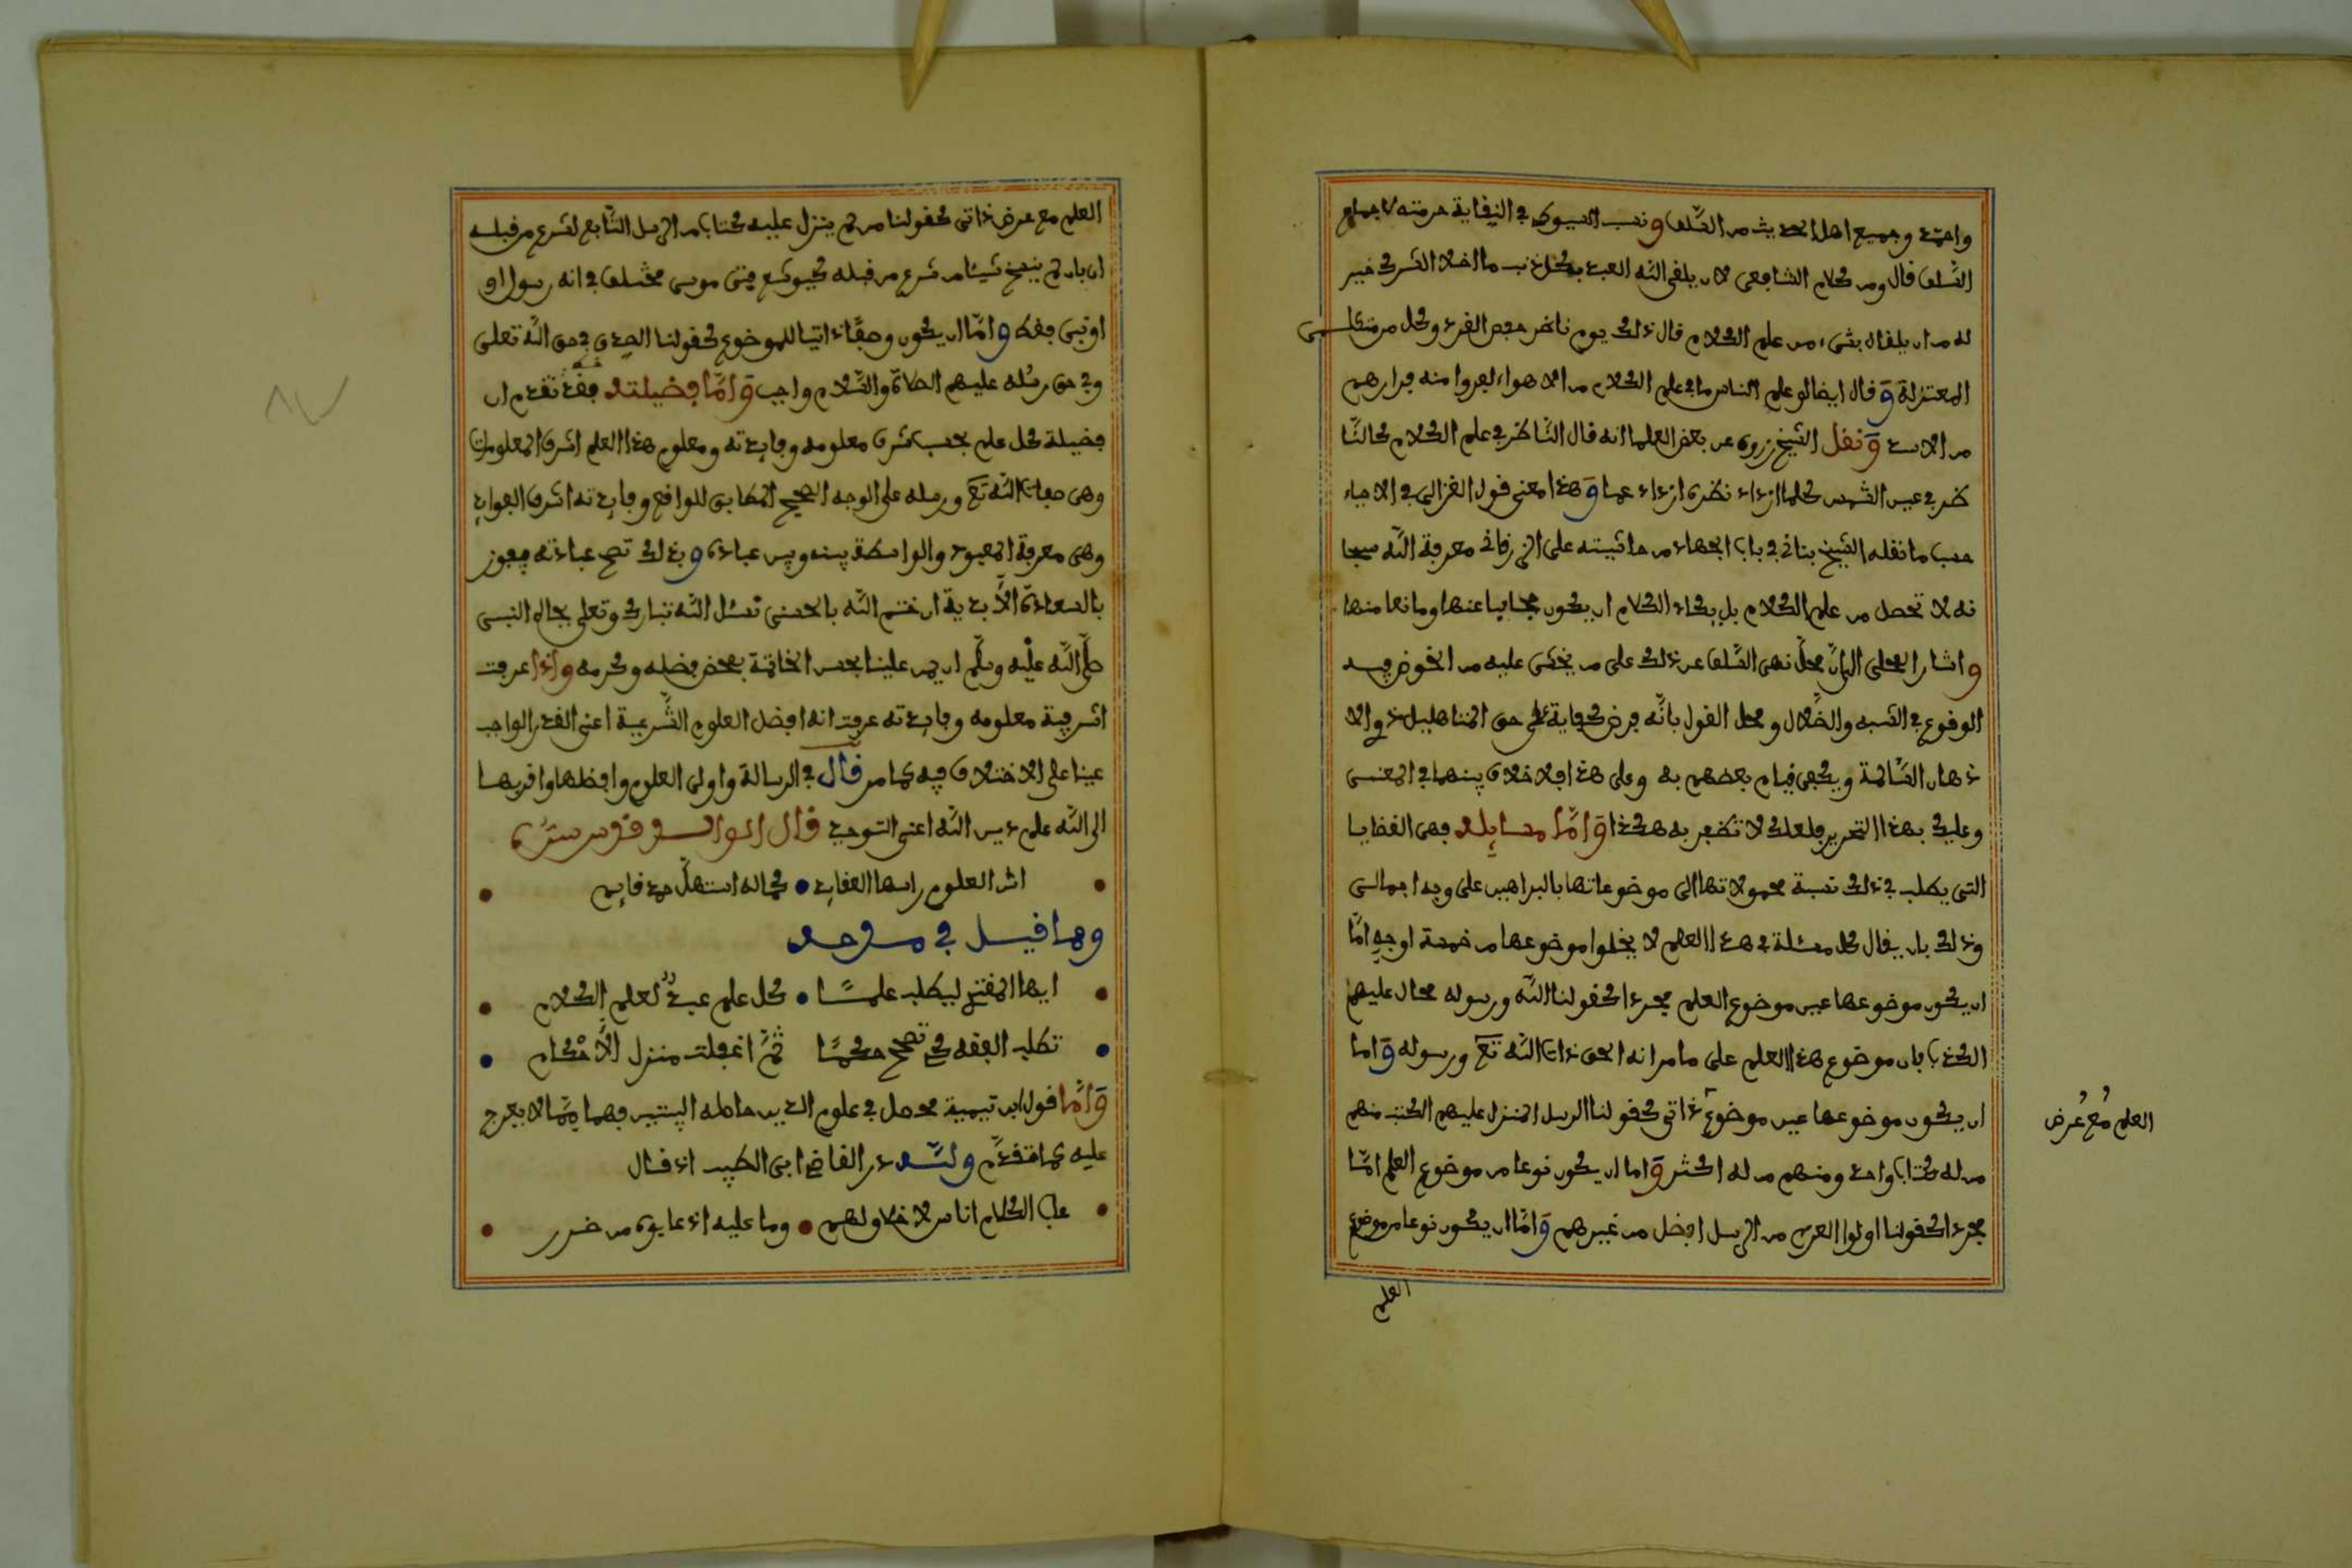 واحمد وجميع اهل الحديث من السّلف ونسب السيوطي في النقاية حرمته لاجماع
السّلف قال ومن كلام الشافعي لان يلقى اللّه العبد بكل ذنب ما خلا الشرك خير
له من ان يلقاه بشيء من علم الكلام قال ذلك يوم ناظر حفص الفرد وكان من متكلمي
المعتزلة وقال ايضا لو علم الناس ما في علم الكلام من الاهواء لفروا منه فرارهم
من الاسد ونقل الشيخ زروق عن بعض العلما انه قال النّاظر في علم الكلام كالنّا
ظر في عين الشمس كلما ازداد نظرا ازداد عما وهذا معنى قول الغزالي في الاحياء
حسب ما نقله الشيخ بناني في باب الجهاد من حاشيته على الزرقاني معرفة اللّه سبحا
نه لا تحصل من علم الكلام بل يكاد الكلام ان يكون حجابا عنها ومانعا منها
واشار المحلي الى انّ محلّ نهي السّلف عن ذلك على من يخشى عليه من الخوض فيه
الوقوع في الشبه والضّلال ومحل القول بانّه فرض كفاية على حق المتاهلين ذوي الا
ذهان السّالمة ويكفي قيام بعضهم به وعلى هذا فلا خلاف بينهما في المعنى
وعليك بهذا التحرير فلعلك لا تظفر به هكذا وامّا مسايله فهي القضايا
التي يطلب في ذلك نسبة محمولاتها الى موضوعاتها بالبراهين على وجه اجمالي
وذلك بان يقال كل مسئلة في هذا العلم لا يخلوا موضوعها من خمسة اوجه امّا
ان يكون موضوعها عين موضوع العلم مجردا كقولنا اللّه ورسوله محال عليهم
الكذب فان موضوع هذا العلم على ما مر انه الحق ذات اللّه تع ورسوله واما
ان يكون موضوعها عين موضوع ذاتي كقولنا الرسل المنزل عليهم الكتب منهم
من له كتاب واحد ومنهم من له اكثر واما ان يكون نوعا من موضوع العلم امّا
مجردا كقولنا اولوا العزم من الرسل افضل من غيرهم وامّا ان يكون نوعا من موضوع
العلم
العلم مع عرض
العلم مع عرض ذاتي كقولنا من لم ينزل عليه كتاب من الرسل التّابع لشرع من قبله
ان بان لم ينسخ شيئا من شرع من قبله كيوشع فتى موسى مختلف في انه رسول او
او نبي فقط وامّا ان يكون وصفا ذاتيا للموضوع كقولنا الصدق في حق اللّه تعلى
وفي حق رسله عليهم الصّلاة والسّلام واجب وامّا فضيلته فقد تقدم ان
فضيلة كل علم بحسب شرف معلومه وفايدته ومعلوم هذا العلم اشرف المعلومات
وهي صفات اللّه تع ورسله على الوجه الصحيح المطابق للواقع وفايدته اشرف الفوايد
وهي معرفة المعبود والواسطة بينه وبين عباده وبذلك تصح عبادته فيفوز
بالسعادة الأبدية ان ختم اللّه بالحسنى نسئل اللّه تبارك وتعلى بجاه النبي
صلّى اللّه عليه وسلّم ان يمن علينا بحسن الخاتمة بمحض فضله وكرمه واذا عرفت
اشرفية معلومه وفايدته عرفت انه افضل العلوم الشّرعية اعني القدر الواجب
عينا على الاختلاف فيه كما مر قال في الرسالة واولى العلوم وافظلها واقربها
الى اللّه علم دين اللّه اعني التوحيد قال الوالد قدس سرّه
اشر العلوم راسها العقايد • كماله استهلّ حمد قايد
ومما قيل في مدحه
ايها المقتدي ليطلب علمًا • كل علم عبد لعلم الكلام
تطلب الفقه كي تصحح حكمًا ثمّ اغفلت منزل الأحكام
وامّا قول ابن تيمية محصل في علوم الدين حاصله البيتين فهما ممّا لا يعرج
عليه كما تقدّم وللّه در القاضي ابي الطيب اذ قال
عاب الكلام اناس لا خلاق لهم • وما عليه اذ عابوه من ضرر